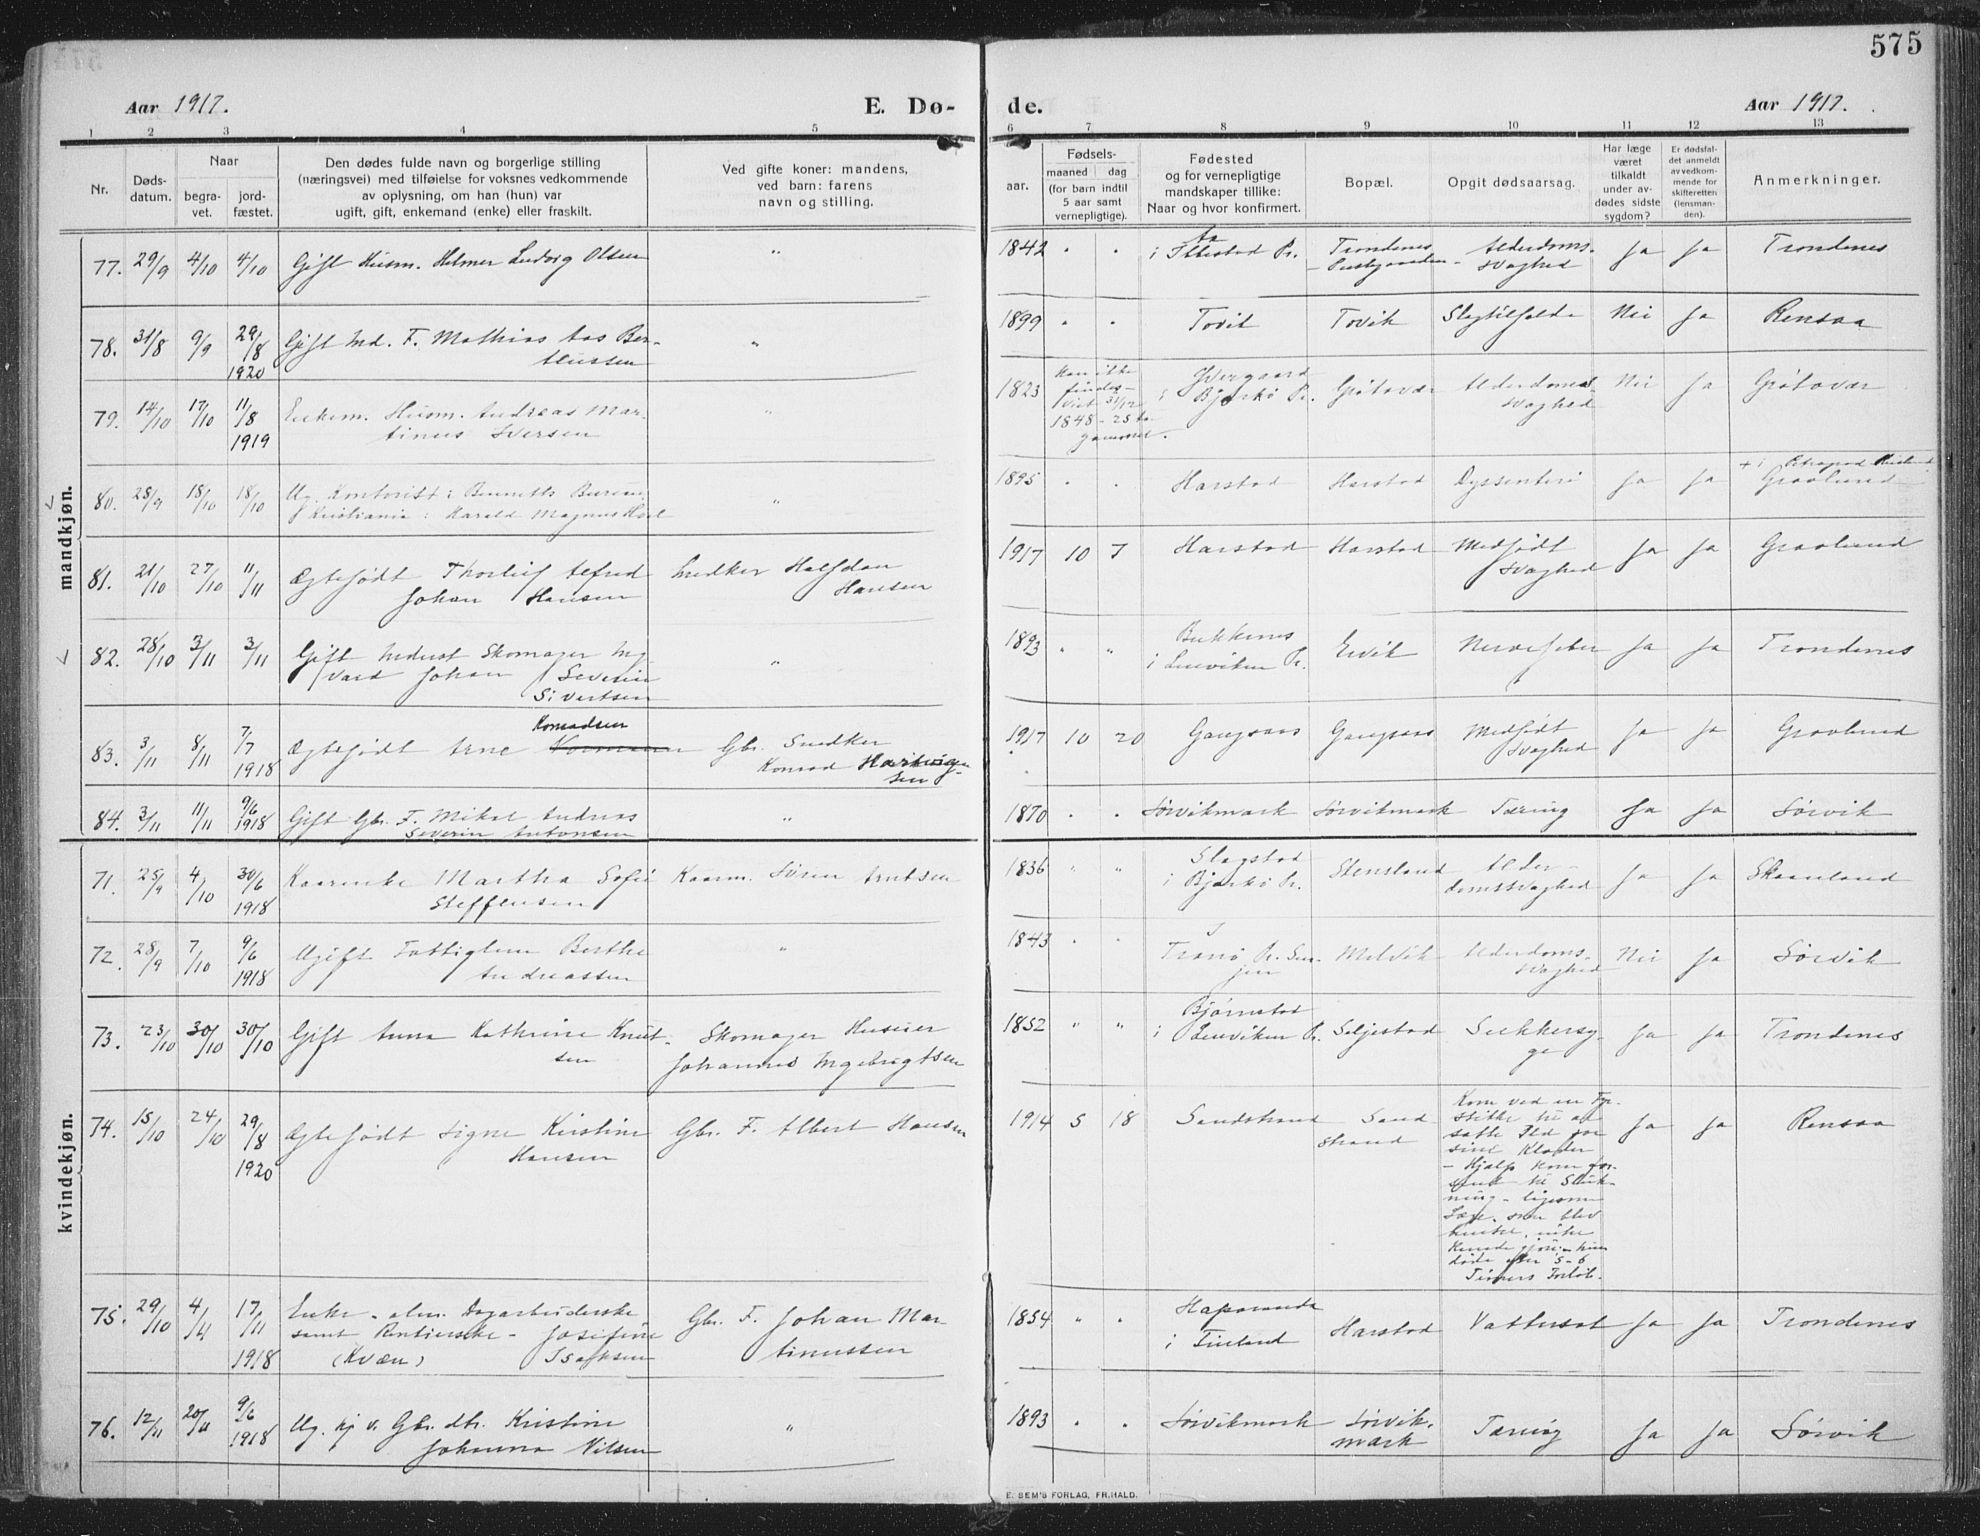 575
Aar 1917. E. Dø- de. Aar 1917.
1 2 3 4 5 6 7 8 9 10 11 12 13
Nr.
Døds-
datum.
Naar
begra-
vet.
jord-
fæstet.
Den dødes fulde navn og borgerlige stilling
(næringsvei) med tilføielse for voksnes vedkommende
av oplysning, om han (hun) var
ugift, gift, enkemand (enke) eller fraskilt.
Ved gifte koner: mandens,
ved barn: farens
navn og stilling.
Fødsels-
aar.
maaned dag
(for barn indtil
5 aar samt
vernepligtige).
Fødested
og for vernepligtige
mandskaper tillike:
Naar og hvor konfirmert.
Bopæl.
Opgit dødsaarsag.
Har læge
været
tilkaldt
under av-
dødes sidste
sygdom?
Er dødsfal-
det anmeldt
av vedkom-
mende for
skifteretten
(lensman-
den).
Anmerkninger.
mandkjøn.
77. 29/9 4/10 4/10 Gift Husm. Helmer Ludvig Olsen " 1842 " " i Ibbestad Pr. Trondenes Alderdoms-
svaghed Ja Ja Trondenes
78. 31/8 9/9 29/8 1920 Gift Ind. F. Mathias Aas Ber-
thussen " 1899 " " Tovik Tovik Slagtilfælde Nei Ja Rensaa
79. 14/10 17/10 11/8 1919 Enkem. Husm. Andreas Mar-
tinus Iversen " 1823 Kan ikke
findes -
vist 31/12
1848 - 25 Aar
gammel. i Bjarkø Pr. Grøtavær Alderdoms
svaghed Nei Ja Grøtavær
80. 28/9 18/10 18/10 Ug. Kontorist i Bennetts Bureau
i Kristiania: Harald Magnus " 1895 " " Harstad Harstad Dyssenteri Ja Ja
Graalund
81. 21/10 27/10 11/11 Ægtefødt Thorleif Alfred
Johan Hansen Snedker Halfdan
Hansen 1917 10 7 Harstad Harstad Medfødt
svaghed Ja Ja Graalund
82. 28/10 3/11 3/11 Gift Inderst Skomager Ing-
vard Johan Severin
Sivertsen " 1893 " " Bukkenes
i Lenviken Pr. Ervik Nervefeber Ja Ja Trondenes
83. 3/11 8/11 7/7 1918 Ægtefødt Arne Konradsen Gbr. Snedker
Konrad Hartvig-
sen 1917 10 20 Gangsaas Gangsaas Medfødt
svaghed Ja Ja Graalund
84. 3/11 11/11 9/6 1918 Gift Gbr. F. Mikal Andreas
Severin Antonsen " 1870 " " Sørvikmark Sørvikmark Tæring Ja Ja Sørvik
kvindekjøn.
71. 25/9 4/10 30/6 1918 Kaarenke Martha Sofie
Steffensen Kaarm. Søren Arntsen 1836 " " Slagstad
i Bjarkø Pr. Stensland Alder-
domssvaghed Ja Ja Skaanland
72. 28/9 7/10 9/6 1918 Ugift Fattiglem Berthe
Andreassen " 1843 " " Tranø Pr. Sen-
jen Melvik Alderdoms-
svaghed Nei Ja Sørvik
73. 23/10 30/10 30/10 Gift Anna Kathrine Knut-
sen Skomager Huseier
Johannes Ingebrigtsen 1852 " " Bjørnstad
i Lenviken Pr. Seljestad Sukkersy-
ge Ja Ja Trondenes
74. 15/10 24/10 29/8 1920 Ægtefødt Signe Kirstine
Hansen Gbr. F. Albert Hansen 1914 5 18 Sandstrand Sand
strand Kom ved en Fyr-
stikke til at
sætte Ild paa
sine Klæder
- Hjælp kom for
sent til Sluk-
ning - ligesom
Læge, som blev
hentet, intet
kunde gjøre - hun
døde efter 5-6
Timers Forløb. Ja Ja Rensaa
75. 29/10 4/11 17/11 1918 Enke - alm. Dagarbeiderske
samt Rentierske - Josefine
(Kvæn) Isaksen Gbr. F. Johan Mar-
tinussen 1854 " " Haparanda
i Finland Harstad Vattersot Ja Ja Trondenes
76. 12/11 20/11 9/6 1918 Ug. hj v. Gbr. dtr. Kristine
Johanna Nilsen " 1893 " " Sørvikmark Sørvik-
mark Tæring Ja Ja Sørvik
E. SEM'S FORLAG, FR.HALD.